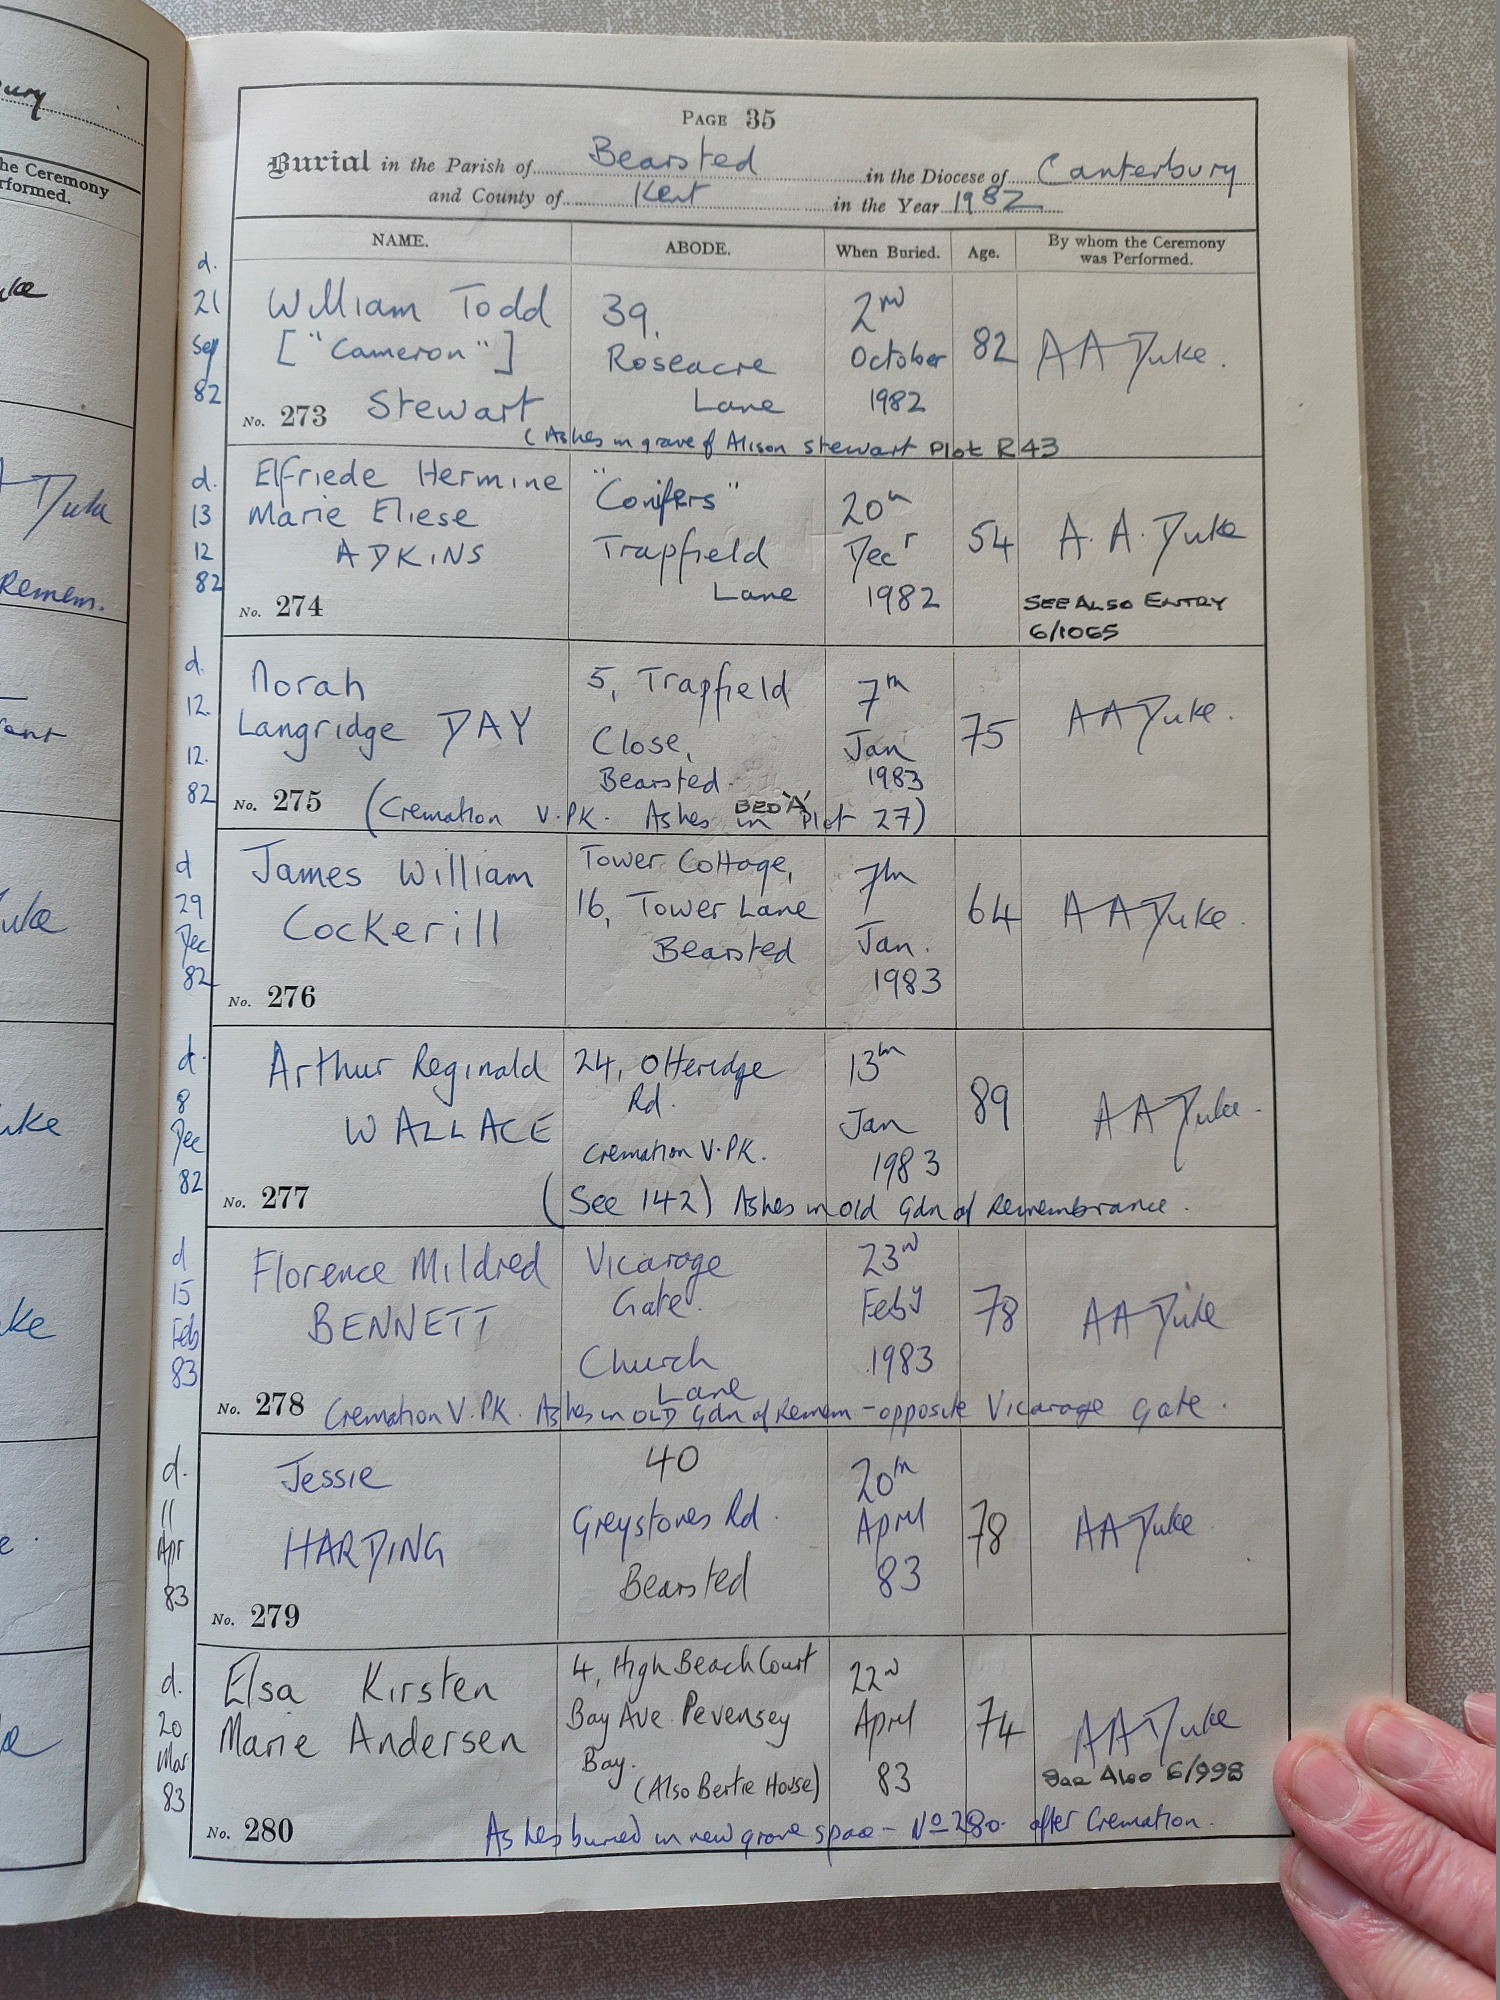 PAGE 35
Burial in the Parish of Bearsted in the Diocese of Canterbury
and County of Kent in the Year 1982
NAME. ABODE. When Buried. Age. By whom the Ceremony was Performed.
d. 21 Sep 82
William Todd
["Cameron"]
Stewart
39,
Roseacre
Lane
2nd
October
1982
82
A A Duke.
No. 273
(Ashes in grave of Alison Stewart Plot R 43
d. 13 12 82
Elfriede Hermine
Marie Eliese
ADKINS
"Conifers"
Trapfield
Lane
20th
Decr
1982
54
A. A. Duke
SEE ALSO ENTRY
6/1065
No. 274
d. 12. 12. 82
Norah
Langridge DAY
5, Trapfield
Close,
Bearsted.
7th
Jan
1983
75
A A Duke.
No. 275
(Cremation V.PK. Ashes in BED 'A' Plot 27)
d 29 Dec 82
James William
Cockerill
Tower Cottage,
16, Tower Lane
Bearsted
7th
Jan.
1983
64
A A Duke.
No. 276
d. 8 Dec 82
Arthur Reginald
WALLACE
24, Otteridge
Rd.
Cremation V.PK.
13th
Jan
1983
89
A A Duke.
No. 277
(See 142) Ashes in old Gdn of Remembrance.
d 15 Feb 83
Florence Mildred
BENNETT
Vicarage
Gate.
Church
Lane
23rd
Feby
1983
78
A A Duke
No. 278
Cremation V.PK. Ashes in OLD Gdn of Remem - opposite Vicarage Gate.
d. 11 Apr 83
Jessie
HARDING
40
Greystones Rd.
Bearsted
20th
April
83
78
A A Duke
No. 279
d. 20 Mar 83
Elsa Kirsten
Marie Andersen
4, High Beach Court
Bay Ave. Pevensey
Bay.
(Also Bertie House)
22nd
April
83
74
A A Duke
See Also 6/998
No. 280
Ashes buried in new grave space - No 280. after Cremation.